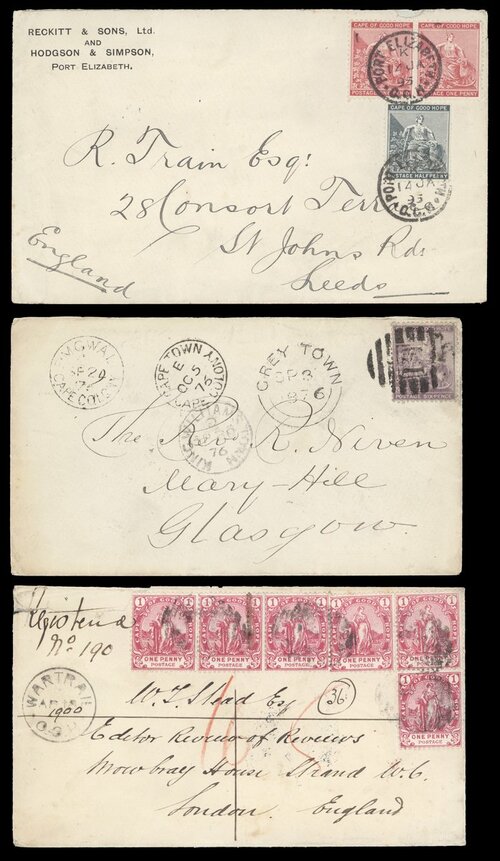 RECKITT & SONS, Ltd.
AND
HODGSON & SIMPSON,
PORT ELIZABETH.
CAPE OF GOOD HOPE
CAPE OF GOOD HOPE
POSTAGE ONE PENNY
CAPE OF GOOD HOPE
POSTAGE HALFPENNY
PORT ELIZABETH
14 JA
95
R. Train Esq:
28 Consort Terr
St Johns Rds
Leeds
England
CAPE COLONY
CAPE TOWN
E
OC 5
76
CAPE COLONY
GREY TOWN
1876
POSTAGE SIXPENCE
KING WILLIAMS TOWN
76
The R. Niven
Mary-Hill
Glasgow.
No. 190
1 1
ONE PENNY
POSTAGE
ONE PENNY
POSTAGE
ONE PENNY
POSTAGE
ONE PENNY
POSTAGE
ONE PENNY
POSTAGE
ONE PENNY
POSTAGE
WARTRAIL
1900
W. T. Stead Esq
36
Editor Review of Reviews
Mowbray House Strand W.C.
London. England